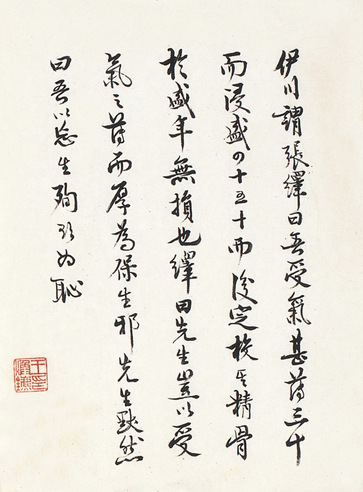 伊川謂張繹曰吾受氣甚薄三十
而浸盛四十五十而後完校其精骨
於盛年無損也繹曰先生豈以受
氣之薄而厚為保生邪先生默然
曰吾以忘生殉欲為恥